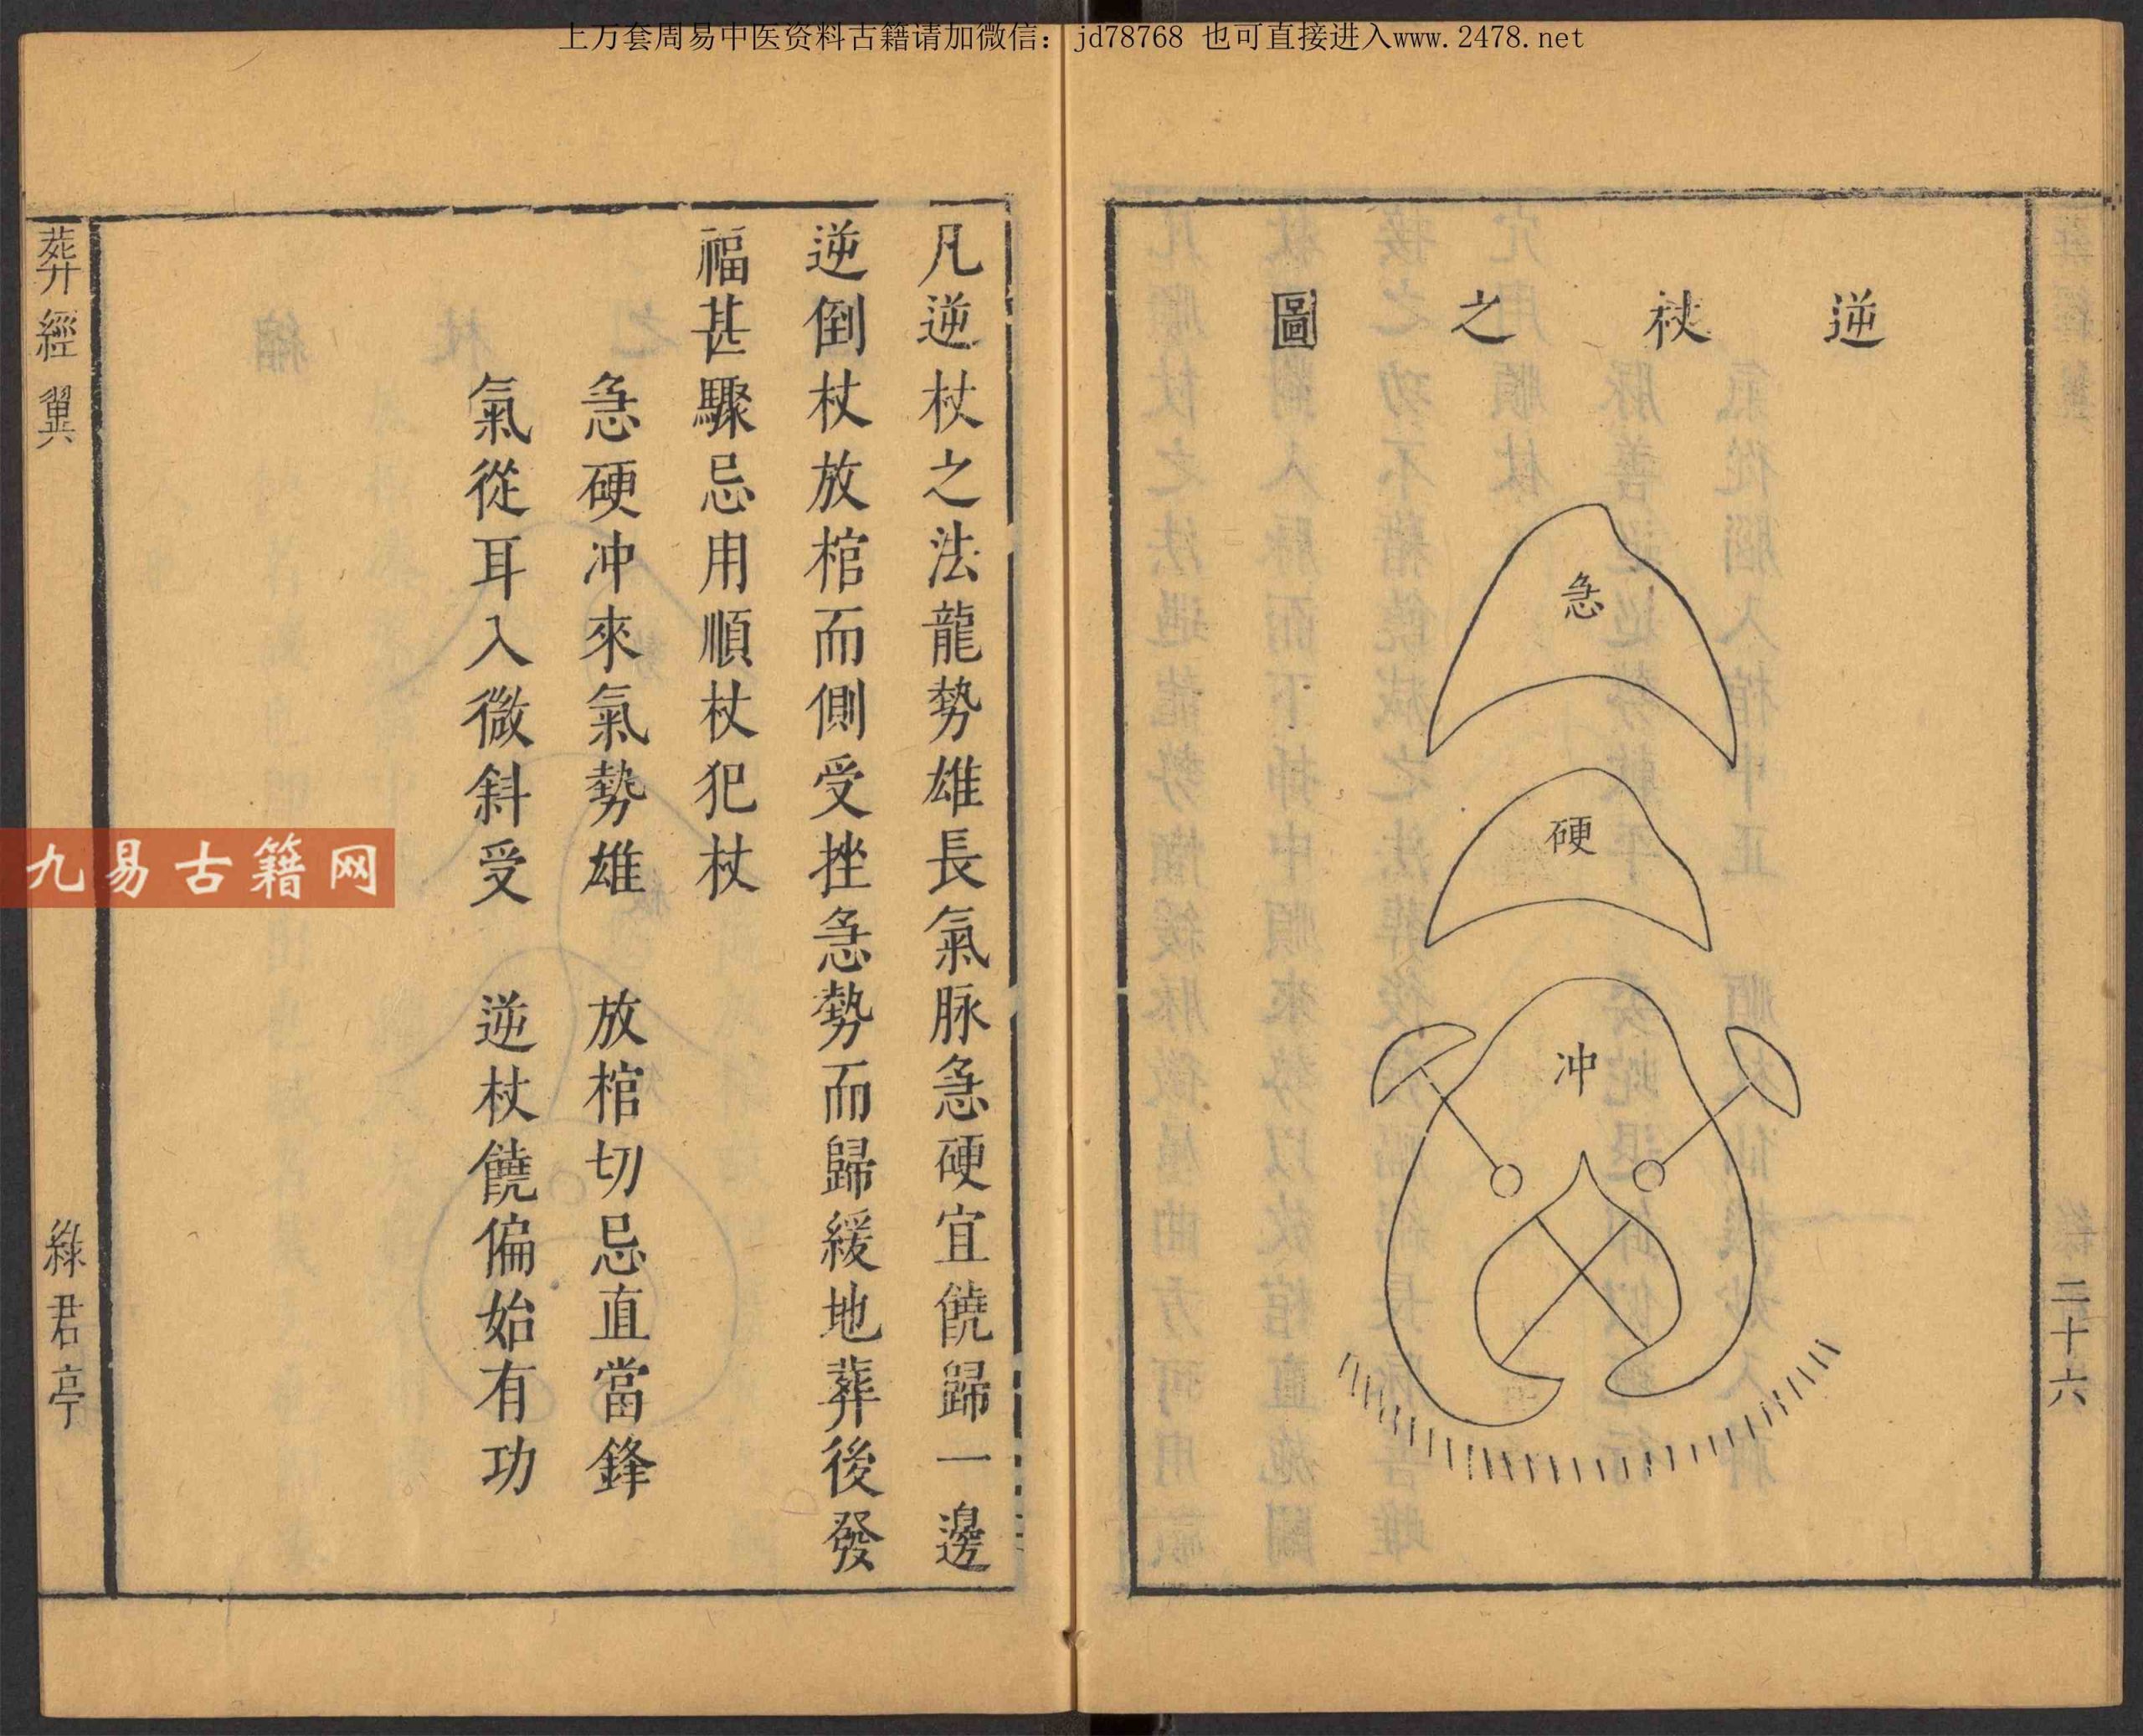 上万套周易中医资料古籍请加微信：jd78768 也可直接进入www.2478.net
二十六
逆杖之圖
急
硬
冲
凡逆杖之法龍勢雄長氣脉急硬宜饒歸一邊
逆倒杖放棺而側受挫急勢而歸緩地葬後發
福甚驟忌用順杖犯杖
急硬冲來氣勢雄　放棺切忌直當鋒
氣從耳入微斜受　逆杖饒偏始有功
葬經翼
綠君亭
九易古籍网